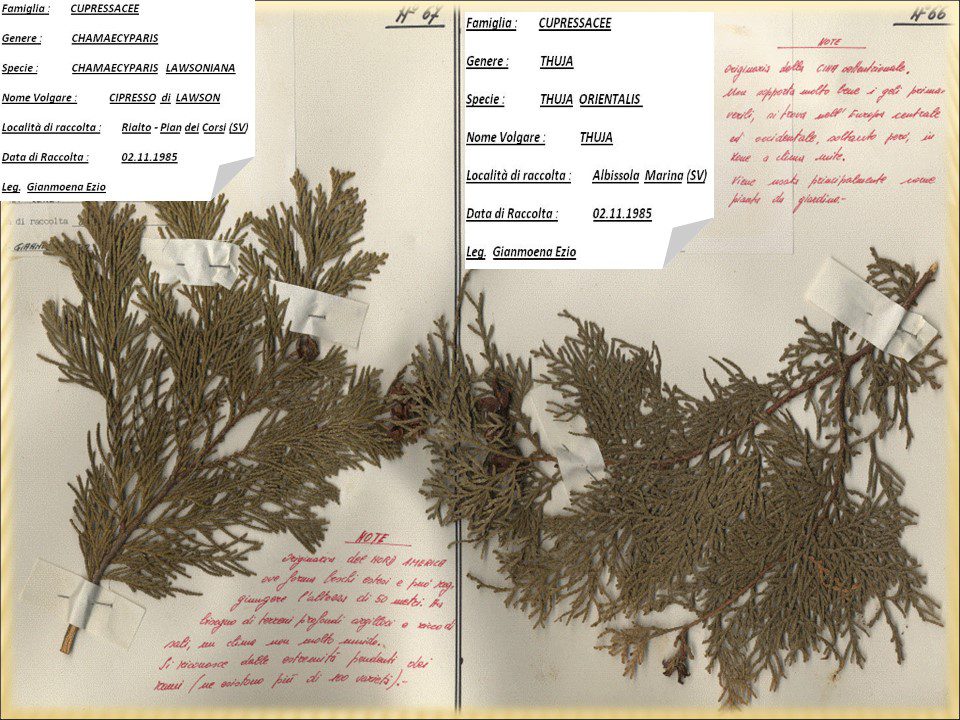 Famiglia : CUPRESSACEE
Genere : CHAMAECYPARIS
Specie : CHAMAECYPARIS LAWSONIANA
Nome Volgare : CIPRESSO di LAWSON
Località di raccolta : Rialto - Pian dei Corsi (SV)
Data di Raccolta : 02.11.1985
Leg. Gianmoena Ezio
di raccolta
N° 67
NOTE
Originario del NORD AMERICA
ove forma boschi estesi e può rag_
giungere l'altezza di 50 metri. Ha
bisogno di terreni profondi argillosi e ricco di
sali, un clima non molto umido..
Si riconosce dalle estremità pendenti dei
rami (ne esistono più di 100 varietà).-
Famiglia : CUPRESSACEE
Genere : THUJA
Specie : THUJA ORIENTALIS
Nome Volgare : THUJA
Località di raccolta : Albissola Marina (SV)
Data di Raccolta : 02.11.1985
Leg. Gianmoena Ezio
N° 66
NOTE
Originaria della CINA settentrionale.
Non sopporta molto bene i geli prima-
verili, si trova nell'Europa centrale
ed occidentale, soltanto però, in
zone a clima mite.
Viene usata principalmente come
pianta da giardino.-